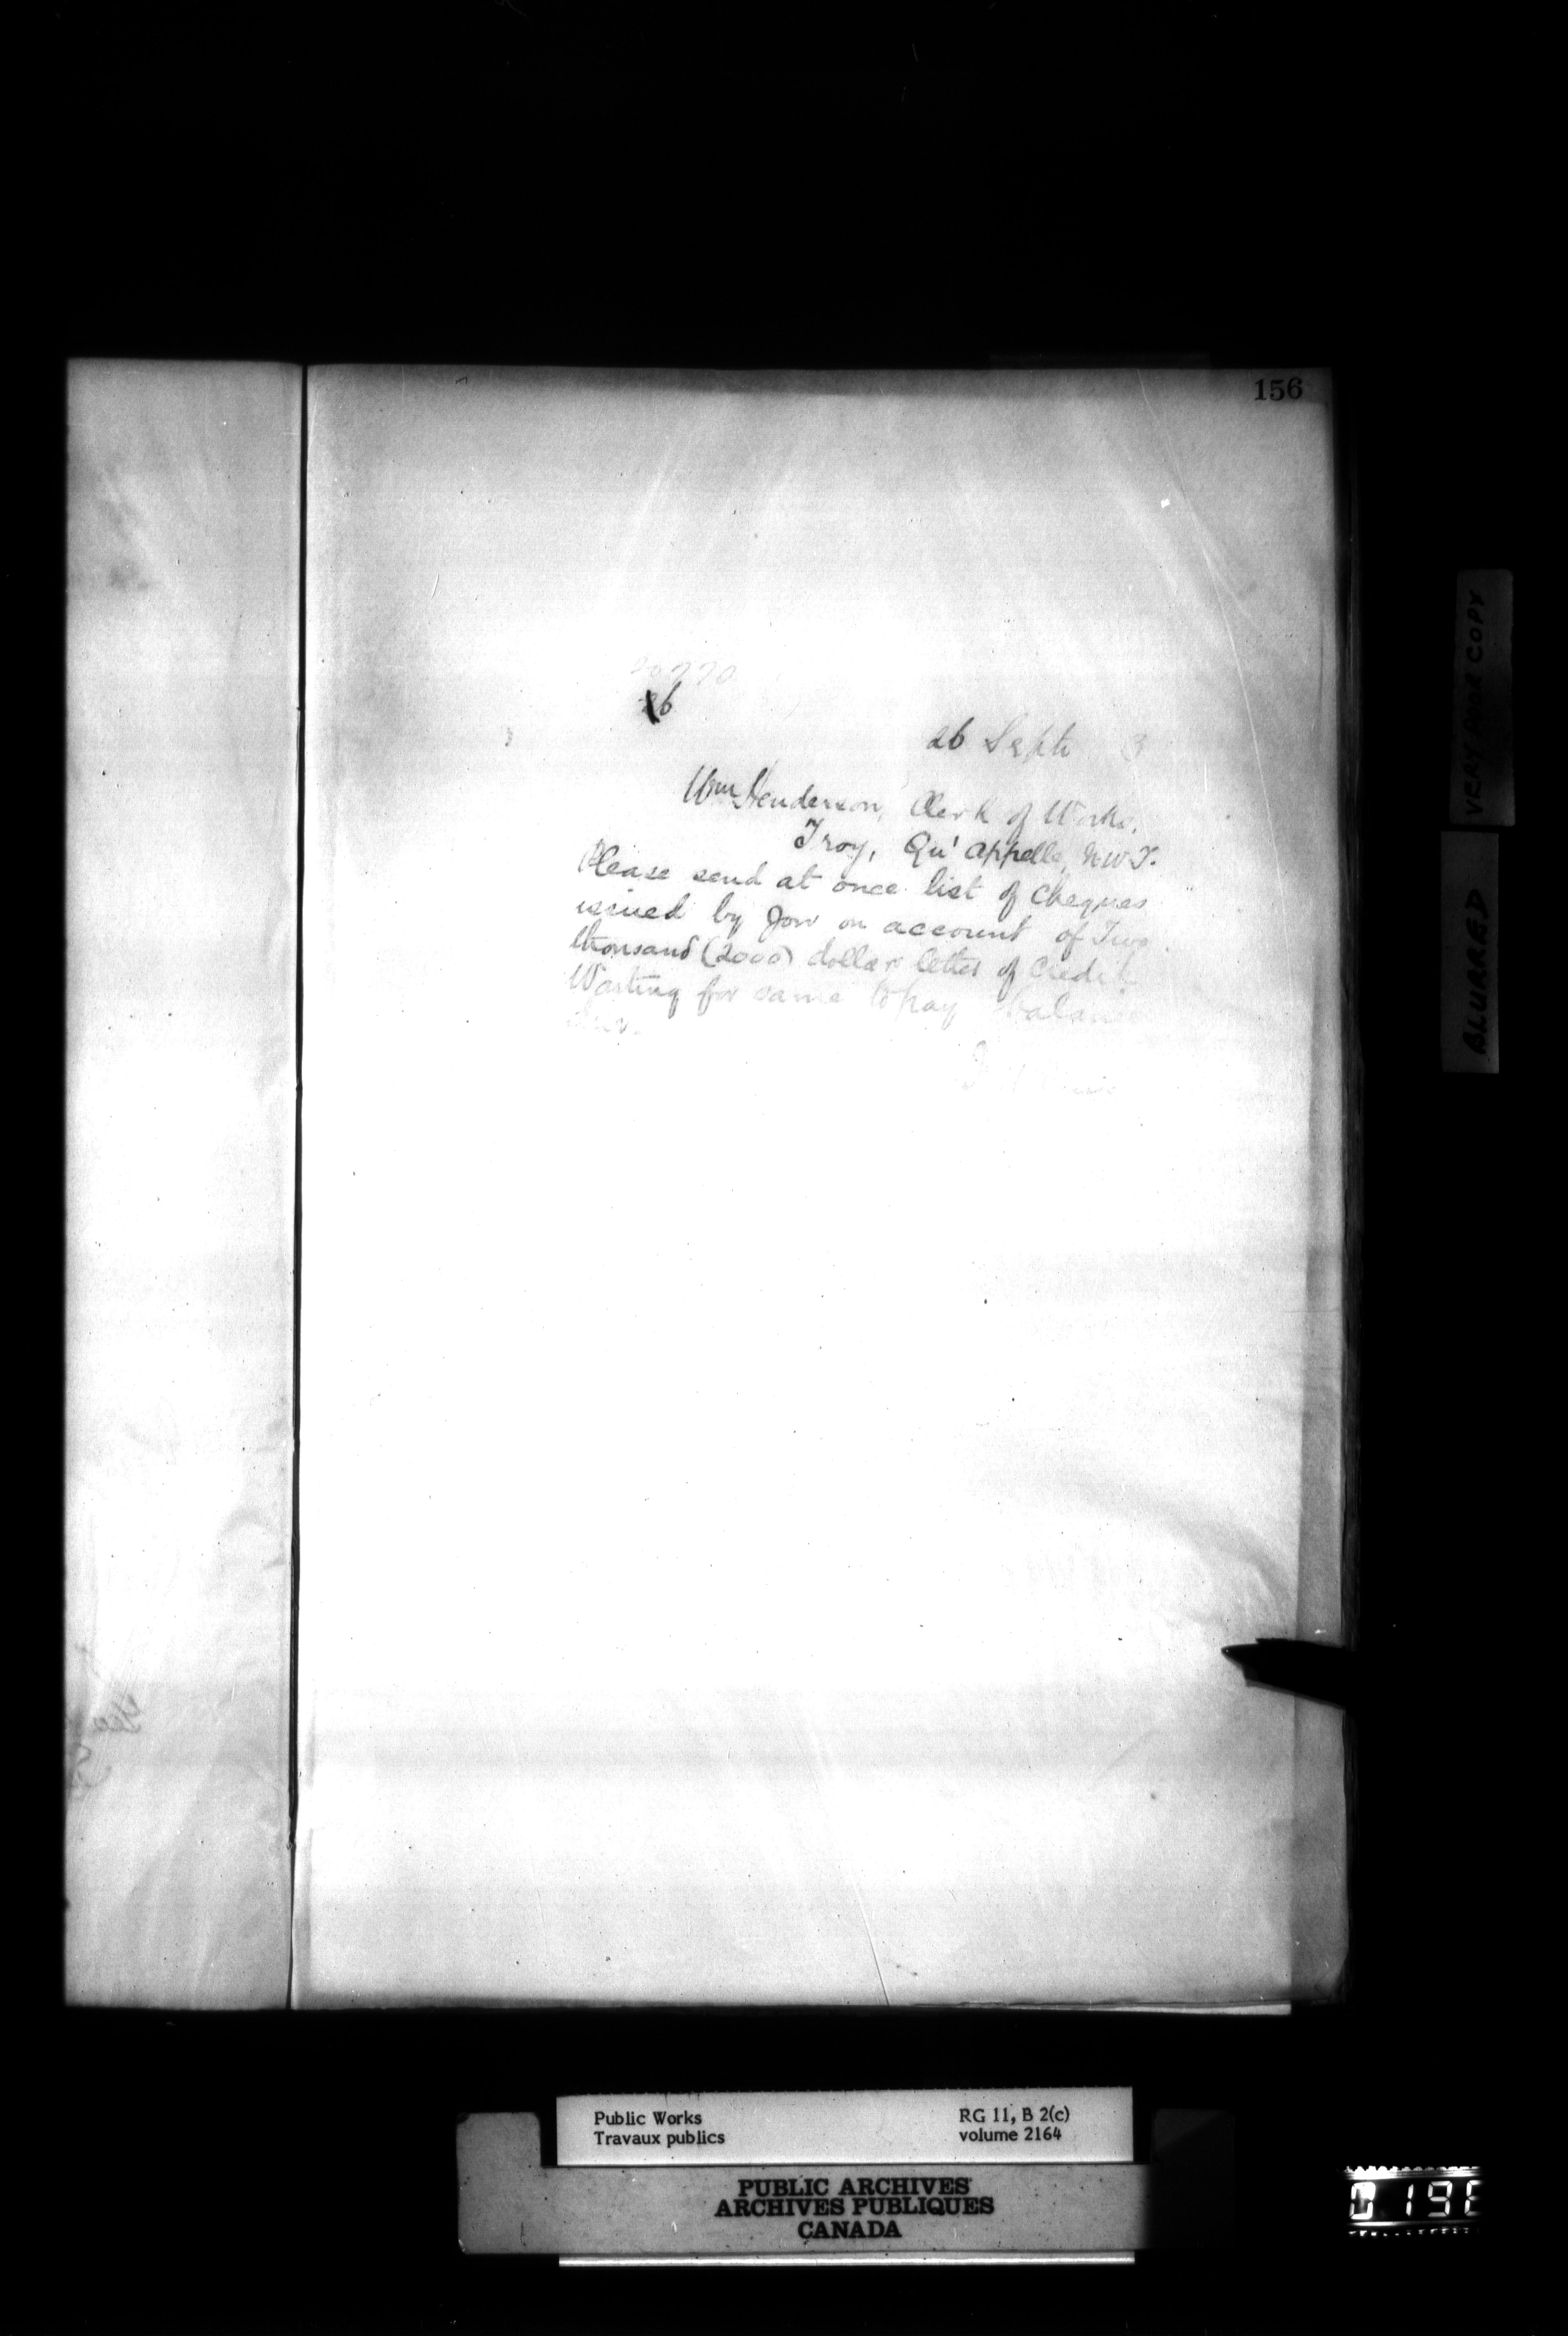 156
26
26 Septr 3
Wm Henderson, Clerk of Works,
Troy, Qu'appelle, N.W.T.
Please send at once list of cheques
issued by you on account of Two
thousand (2000) dollar letter of Credit.
Waiting for same to pay balance
due.
VERY POOR COPY
BLURRED
Public Works
Travaux publics
RG 11, B 2(c)
volume 2164
PUBLIC ARCHIVES
ARCHIVES PUBLIQUES
CANADA